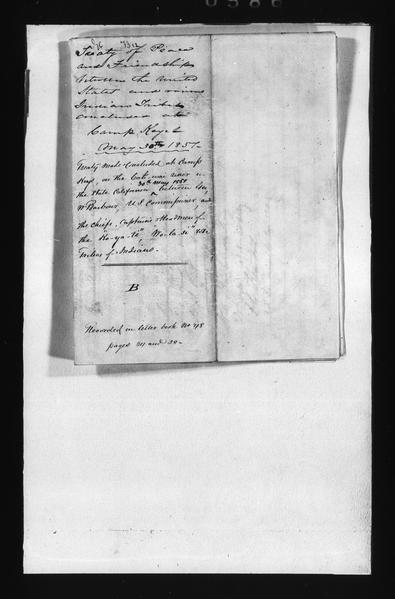 Treaty of Peace
and Friendship
between the United
States and nine
Indian Tribes
concluded at
Camp Keyes
May 30th 1851
Treaty made & concluded at Camp
Keys, on the river in
the State California 30th May 1851 between Geo.
W Barbour, U.S. Commissioner, and
the Chiefs, Captains & Head men of
the "Ko-ya-te", "Wo-la-si" &c &c
Tribes of Indians.
B
Recorded in letter book No 48
pages and